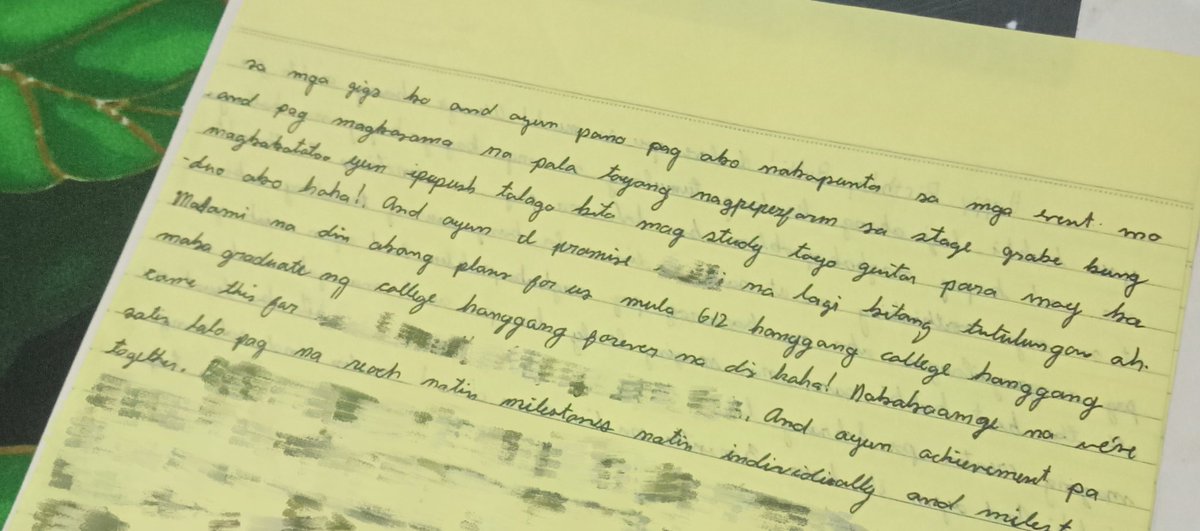 sa mga gigs ko and ayun pano pag ako nakapunta sa mga event mo
and pag magkasama na pala tayong nagpeperform sa stage grabe kung
magkakatotoo yun ipupush talaga kita mag study tayo guitar para may ka
-duo ako haha! And ayun I promise na lagi kitang tutulungan ah.
Madami na din akong plans for us mula G12 hanggang college hanggang
maka graduate ng college hanggang forever na din haha! Nakakaamge na we're
came this far . And ayun achievement pa
satin lalo pag na reach natin milestones natin individually and milest
together.